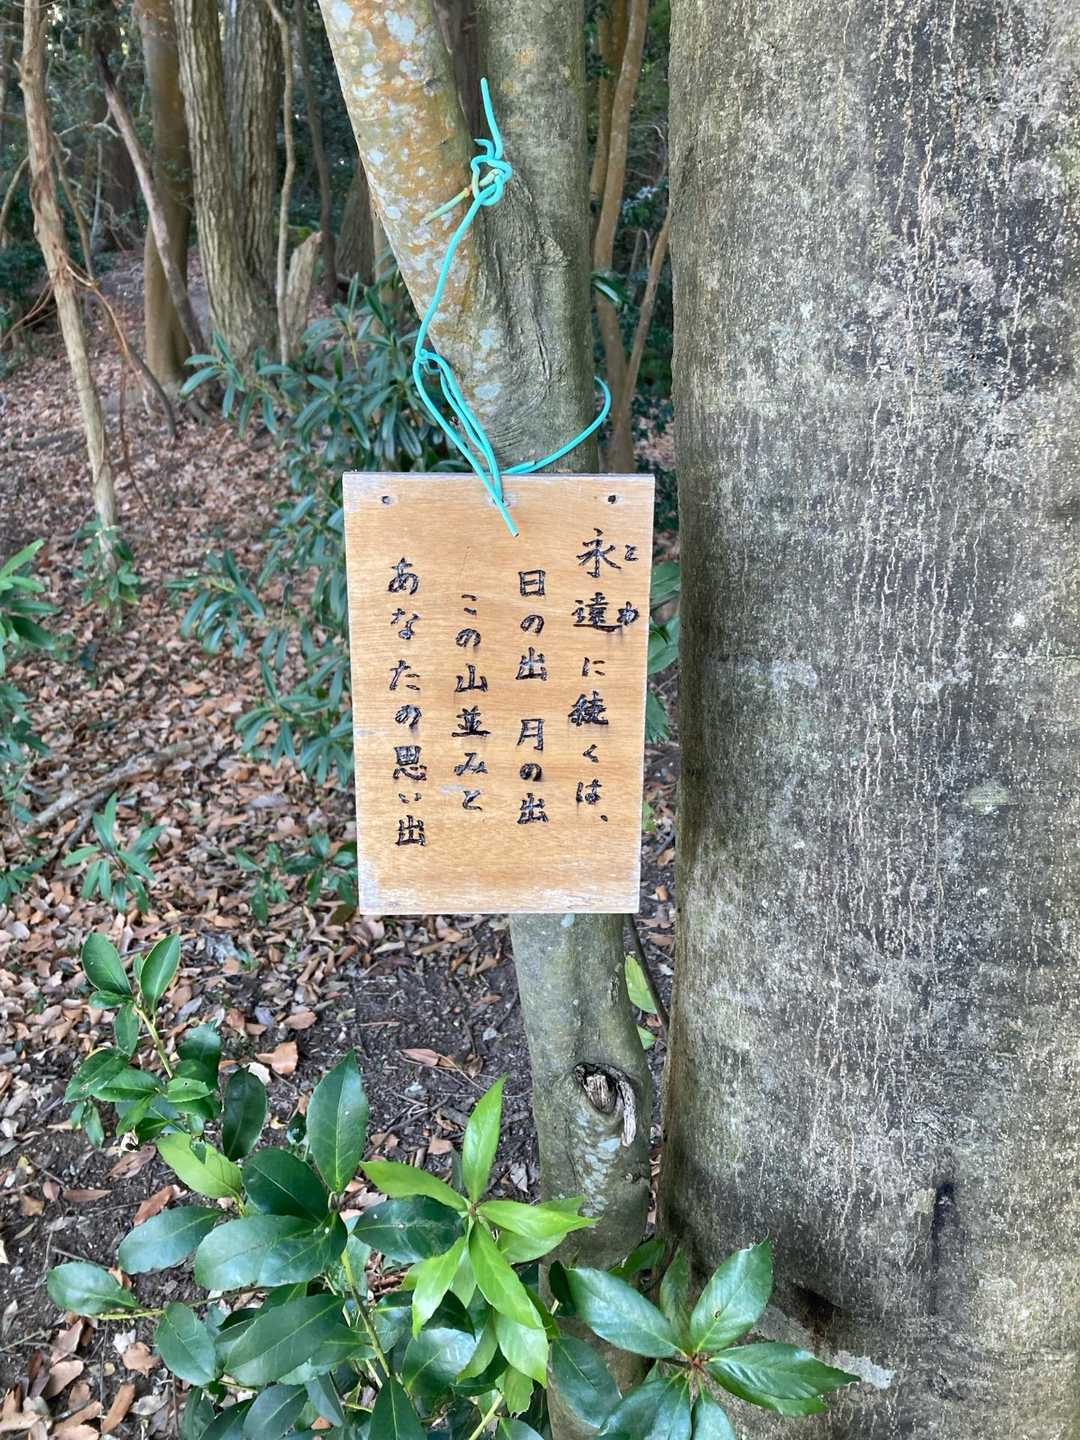 永遠に続くは、
とわ
日の出　月の出
この山並みと
あなたの思い出